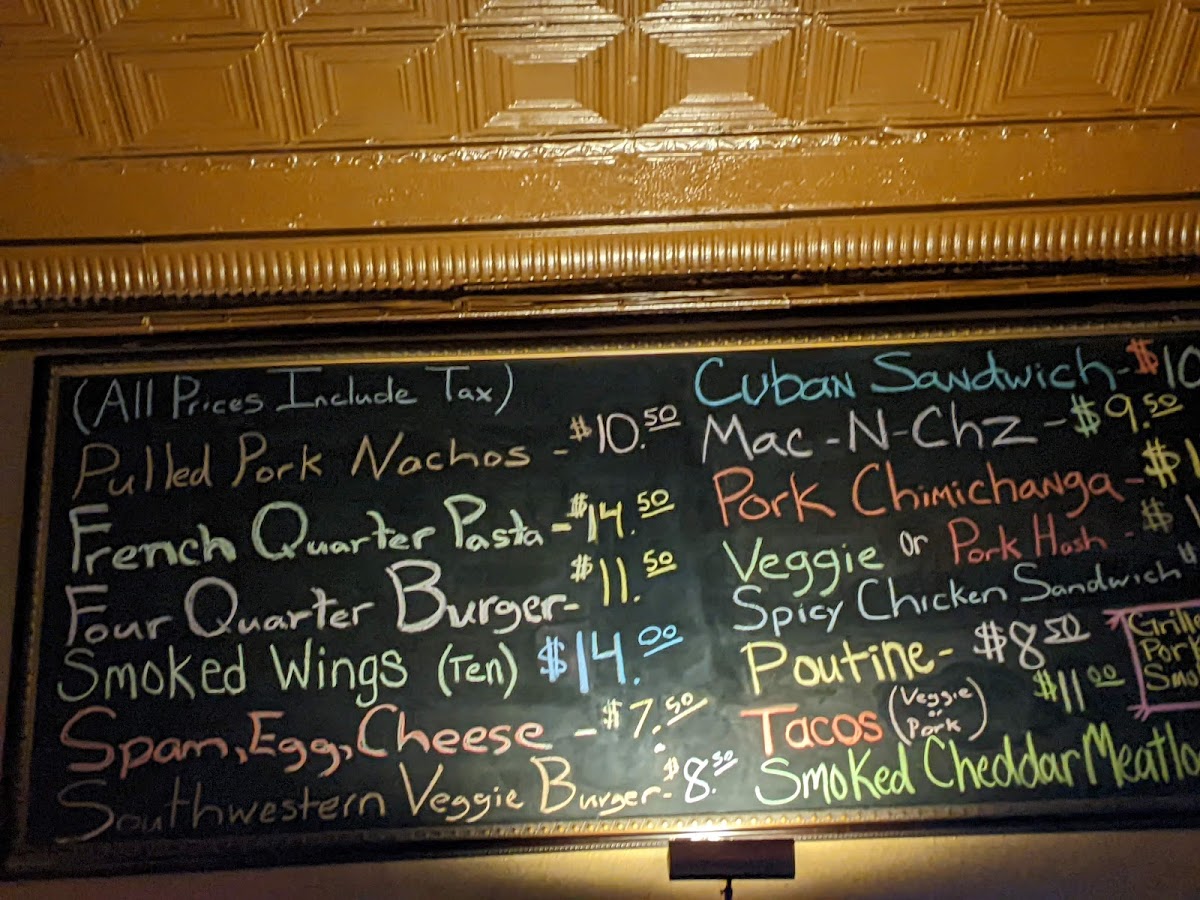 (All Prices Include Tax)
Pulled Pork Nachos - $10.50
French Quarter Pasta - $14.50
Four Quarter Burger - $11.50
Smoked Wings (Ten) $14.00
Spam, Egg, Cheese - $7.50
Southwestern Veggie Burger - $8.50
Cuban Sandwich - $10
Mac-N-Chz - $9.50
Pork Chimichanga - $1
Veggie or Pork Hash - $1
Spicy Chicken Sandwich $
Poutine - $8.50
Tacos (Veggie or Pork) $11.00
Smoked Cheddar Meatlo